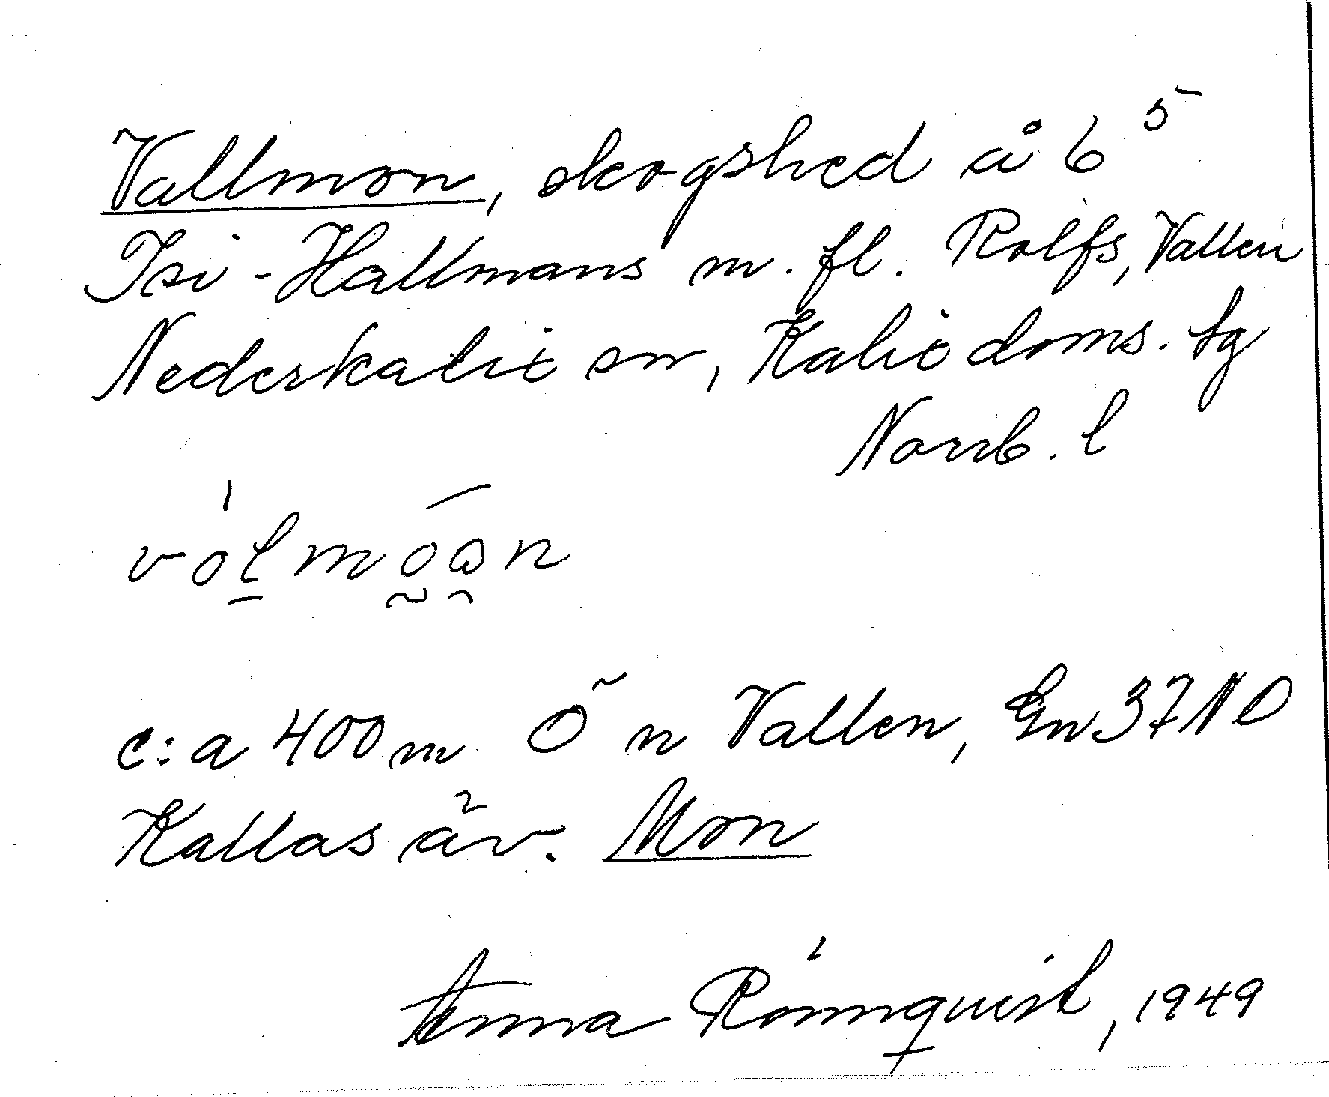 Vallmon, skogshed å 6⁵
Isi-Hallmans m. fl. Rolfs, Vallen
Nederkalix sn, Kalix doms. tg
Norrb. l
c:a 400 m Ö n Vallen, Gn 37 NO
Kallas äv. Mon
Anna Rönnquist, 1949